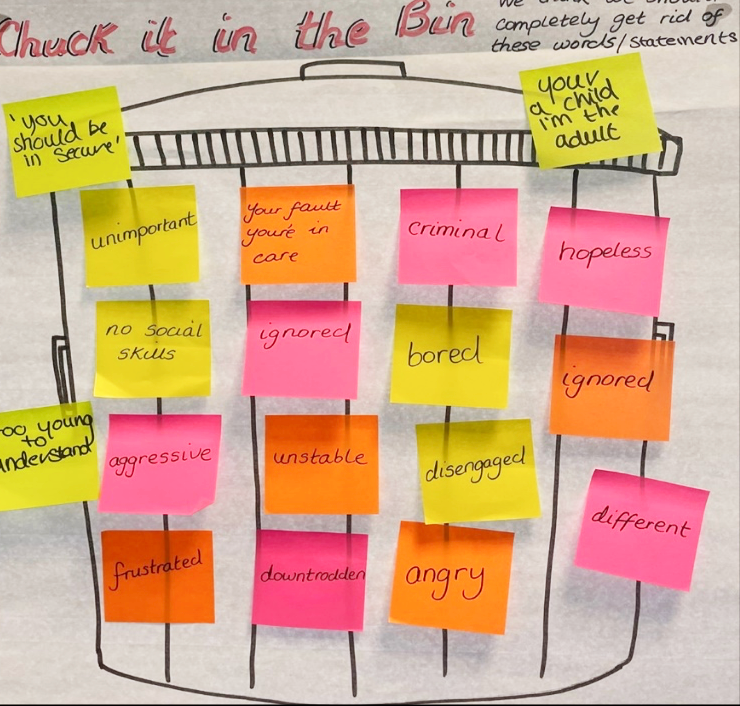 Chuck it in the Bin
completely get rid of
these words/statements
'you
should be
in secure'
your
a child
i'm the
adult
unimportant
your fault
you're in
care
criminal
hopeless
no social
skills
ignored
bored
ignored
oo young
to
understand
aggressive
unstable
disengaged
different
frustrated
downtrodden
angry